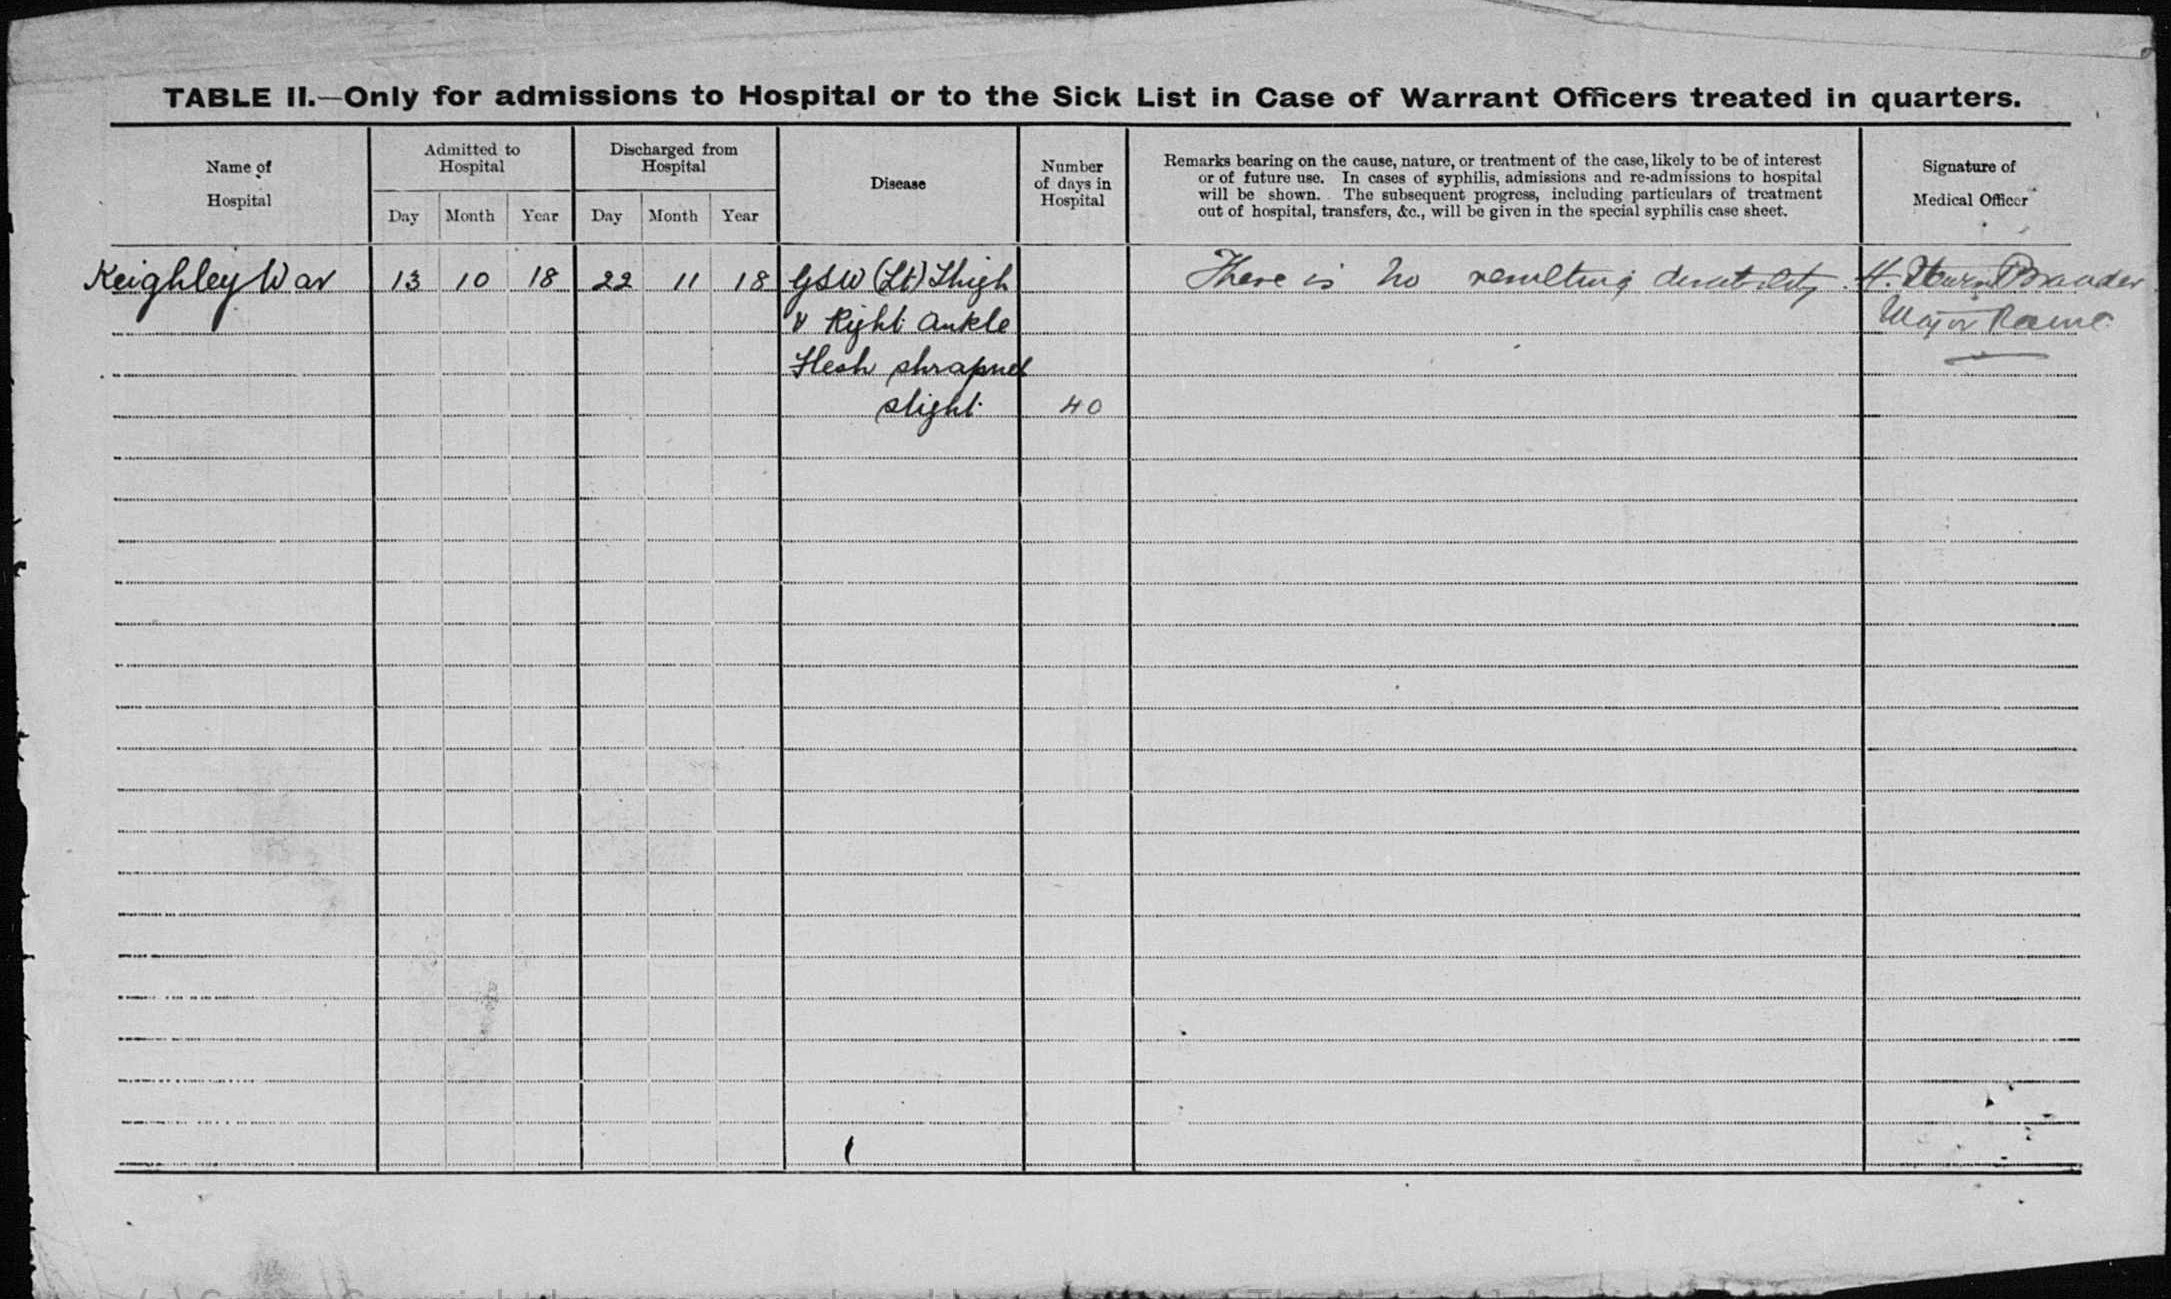 TABLE II.—Only for admissions to Hospital or to the Sick List in Case of Warrant Officers treated in quarters.
Name of
Hospital
Admitted to
Hospital
Day Month Year
Discharged from
Hospital
Day Month Year
Disease
Number
of days in
Hospital
Remarks bearing on the cause, nature, or treatment of the case, likely to be of interest
or of future use. In cases of syphilis, admissions and re-admissions to hospital
will be shown. The subsequent progress, including particulars of treatment
out of hospital, transfers, &c., will be given in the special syphilis case sheet.
Signature of
Medical Officer
Keighley War 13 10 18 22 11 18 GSW (Lt) Thigh There is no resulting H.
& Right Ankle Major
Flesh shrapnel
slight 40